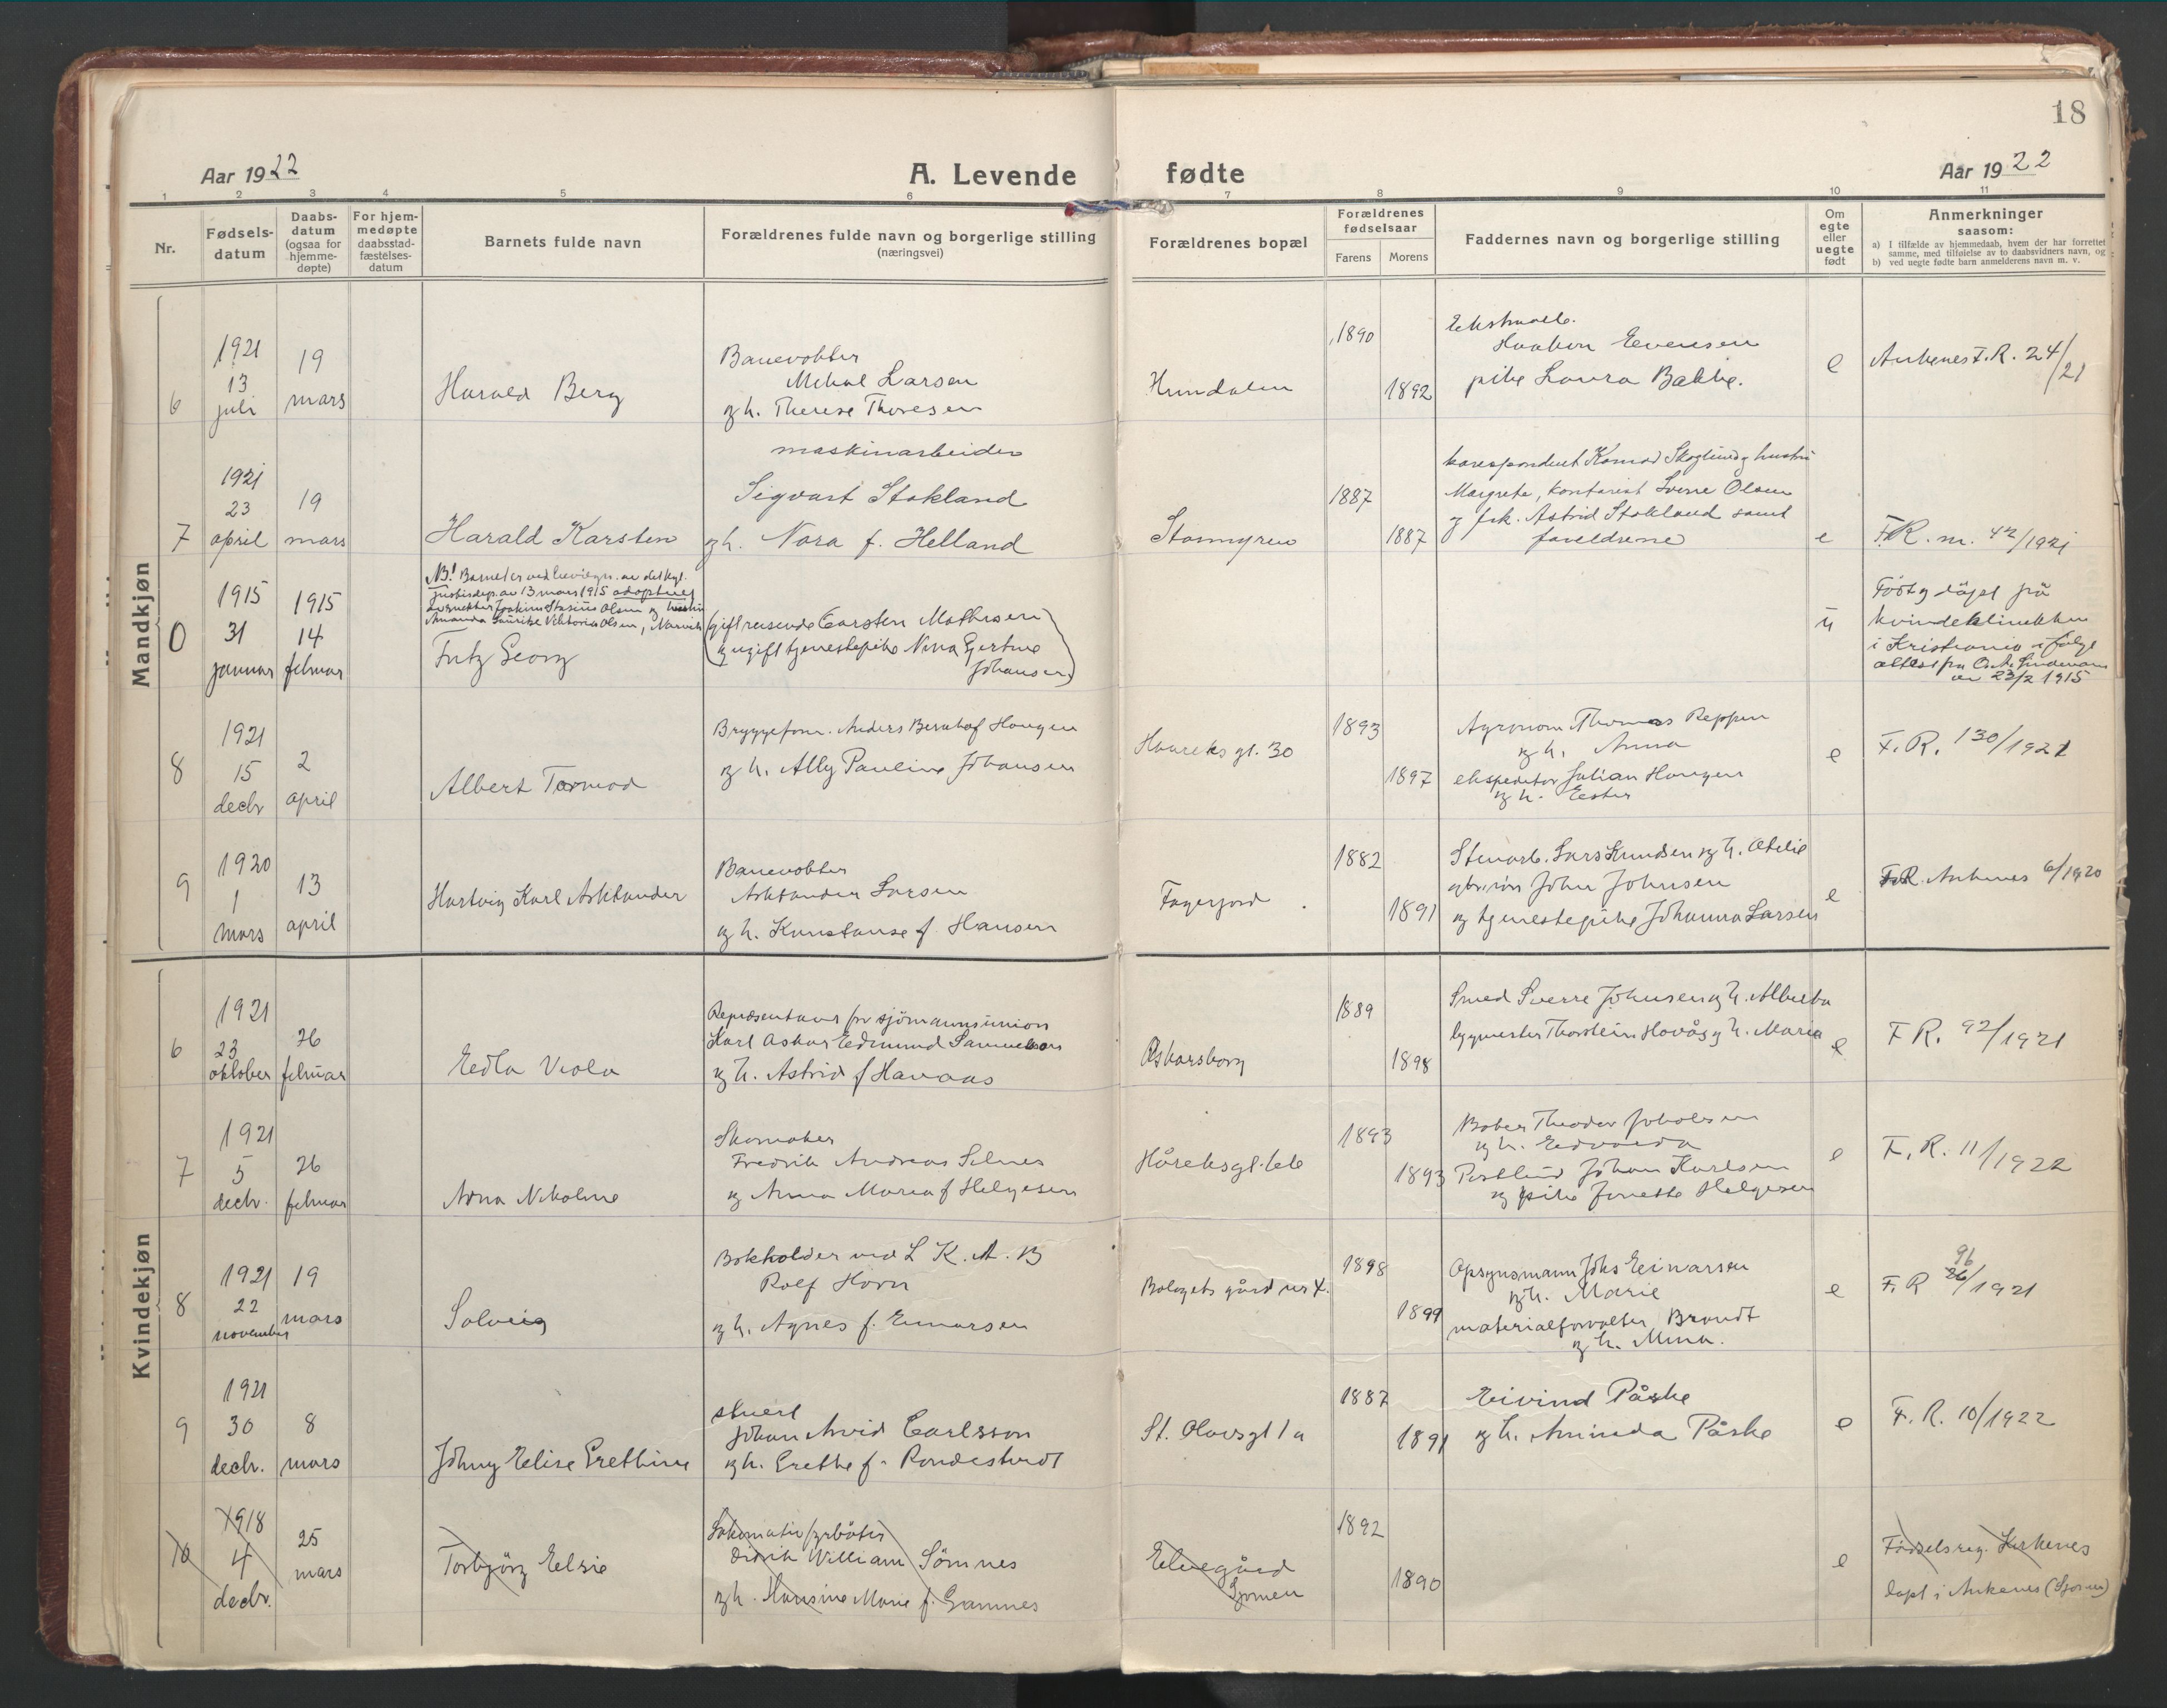 18
Aar 1922
A. Levende fødte
Aar 1922
1 2 3 4 5 6 7 8 9 10 11
Nr.
Fødsels-
datum
Daabs-
datum
(ogsaa for
hjemme-
døpte)
For hjem-
medøpte
daabsstad-
fæstelses-
datum
Barnets fulde navn
Forældrenes fulde navn og borgerlige stilling
(næringsvei)
Forældrenes bopæl
Forældrenes
fødselsaar
Farens Morens
Faddernes navn og borgerlige stilling
Om
egte
eller
uegte
født
Anmerkninger
saasom:
a) I tilfælde av hjemmedaab, hvem der har forrettet
samme, med tilføielse av to daabsvidners navn, og
b) ved uegte fødte barn anmelderens navn m. v.
Mandkjøn
6
1921
13
juli
19
mars
Harald Berg
Banevokter
Mikal Larsen
og h. Therese Thoresen
Hundalen
1890
1892
Haakon Evensen
pike Laura Bakke.
e
Ankenes F.R. 24/21
7
1921
23
april
19
mars
Harald Karsten
maskinarbeider
Sigvart Stokland
og h. Nora f. Helland
Stormyren
1887
1887
korespondent Konrad Skoglund og hustru
Margrete, kontorist Sverre Olsen
og frk. Astrid Stokland samt
foreldrene
e
F.R. nr. 42/1921
0
1915
31
januar
1915
14
februar
NB! Barnet er ved bevilgn. av det kgl.
justisdep. av 13 mars 1915 adoptert
Olsen og hustru
Amanda Viktoria Olsen, Narvik
Fritz Georg
(gift reisende Carsten Mathisen
og ugift tjenestepike Nina Gjertine
Johansen)
u
Född og döpt på
kvindeklinikken
i Kristiania ifølge
attest fra
av 23/2 1915
8
1921
15
decbr
2
april
Albert Tormod
Bryggeform. Anders Bernhof Haugen
og h. Ally Pauline Johansen
Haareks gt. 30
1893
1897
Agronom Thomas Reppen
og h. Anna
ekspeditør Julian Haugen
og h. Ester
e
F. R. 130/1921
9
1920
1
mars
13
april
Hartvig Karl Asktander
Banevokter
Asktander Larsen
og h. Konstanse f. Hansen
Fagerjord
1882
1891
Stenarb. Lars Knudsen og h. Otelie
John Johnsen
og tjenestepike Johanna Larsen
e
F.R. Ankenes 6/1920
Kvindekjøn
6
1921
23
oktober
26
februar
Edla Viola
Repræsentant for sjömannsunion
Karl Oskar Edmund Samuelson
og h. Astrid f Havaas
Oskarsborg
1889
1898
Smed Sverre Johnsen og h. Alberta
bygmester Thorstein Hovås og h. Maria
e
F R. 92/1921
7
1921
5
decbr.
26
februar
Arna Nikoline
Skomaker
Fredrik Andreas Selnes
og Anna Maria f Helgesen
Håreksgt.
1893
1893
Baker Theodor Jakobsen
og h. Edvarda
Postbud Johan Karlsen
og pike Jenette Helgesen
e
F. R. 11/1922
8
1921
22
november
19
mars
Solveig
Bokholder ved L. K. A. B
Rolf Horn
og h. Agnes f. Einarsen
Bolagets gård nr 4.
1898
1899
Opsynsmann Johs Einarsen
og h. Marie
materialforvalter Brandt
og h. Mina.
e
96
F. R 26/1921
9
1921
30
decbr.
8
mars
Johny Elise Grethine
stuert
Johan Arvid Carlsson
og h. Grethe f. Rondestvedt
St. Olavsgt 1a
1887
1891
Eivind Påske
og h. Aminda Påske
e
F. R. 10/1922
10
1918
4
decbr.
25
mars
Torbjörg Elsie
Lokomotivfyrbøter
Didrik William Sömnes
og h. Hansine Marie f. Gamnes
Elvegård
Sjomen
1892
1890
e
Fødselsreg. Kirkenes
døpt i Ankenes (Sjomen)